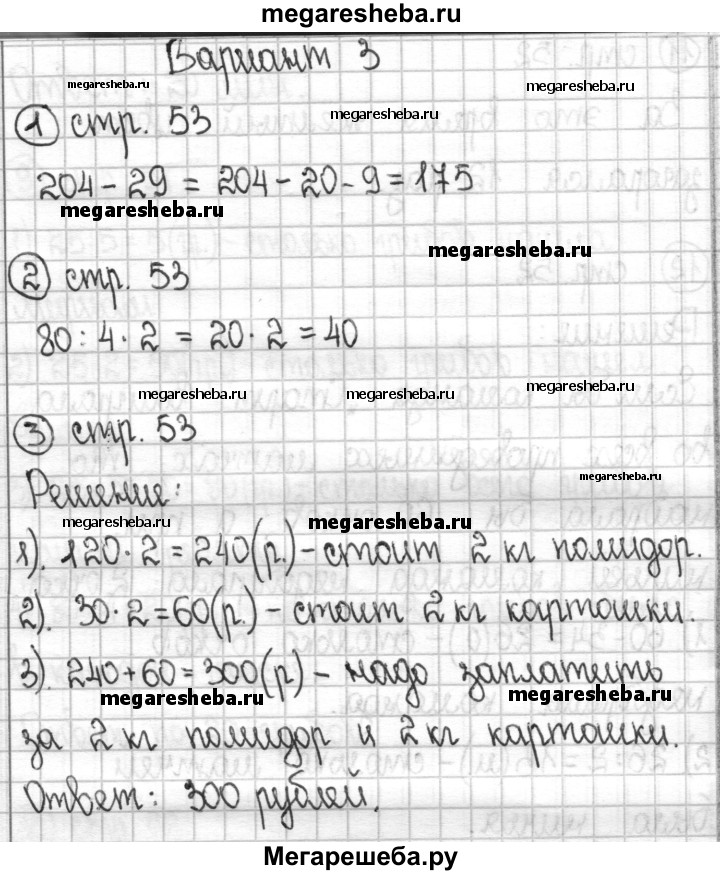 megaresheba.ru
Вариант 3
megaresheba.ru
megaresheba.ru
megaresheba.ru
1 стр. 53
204 - 29 = 204 - 20 - 9 = 175
megaresheba.ru
megaresheba.ru
2 стр. 53
80 : 4 · 2 = 20 · 2 = 40
megaresheba.ru
megaresheba.ru
megaresheba.ru
3 стр. 53
megaresheba.ru
Решение:
megaresheba.ru
megaresheba.ru
1). 120 · 2 = 240(р.) - стоит 2 кг помидор.
2). 30 · 2 = 60(р.) - стоит 2 кг картошки.
3). 240 + 60 = 300(р) - надо заплатить
megaresheba.ru
megaresheba.ru
за 2 кг помидор и 2 кг картошки.
Ответ: 300 рублей.
Мегарешеба.ру